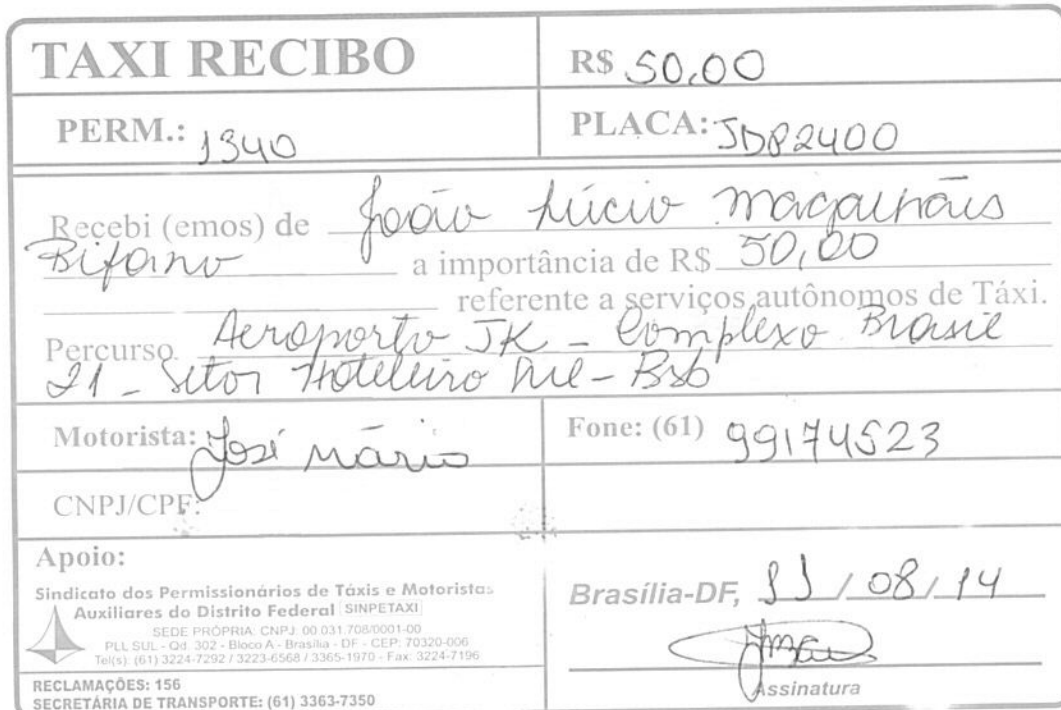 TAXI RECIBO
R$ 50,00
PERM.: 1340
PLACA: JDP2400
Recebi (emos) de João Lúcio Magalhães
Bifano a importância de R$ 50,00
referente a serviços autônomos de Táxi.
Percurso Aeroporto JK - Complexo Brasil
21 - Setor Hoteleiro Sul - Bsb
Motorista: José Mário
Fone: (61) 99174523
CNPJ/CPF:
Apoio:
Sindicato dos Permissionários de Táxis e Motoristas
Auxiliares do Distrito Federal SINPETAXI
SEDE PRÓPRIA: CNPJ: 00.031.708/0001-00
PLL SUL - Qd. 302 - Bloco A - Brasília - DF - CEP: 70320-006
Tel(s): (61) 3224-7292 / 3223-6568 / 3365-1970 - Fax: 3224-7196
RECLAMAÇÕES: 156
SECRETÁRIA DE TRANSPORTE: (61) 3363-7350
Brasília-DF, 11 / 08 / 14
Assinatura